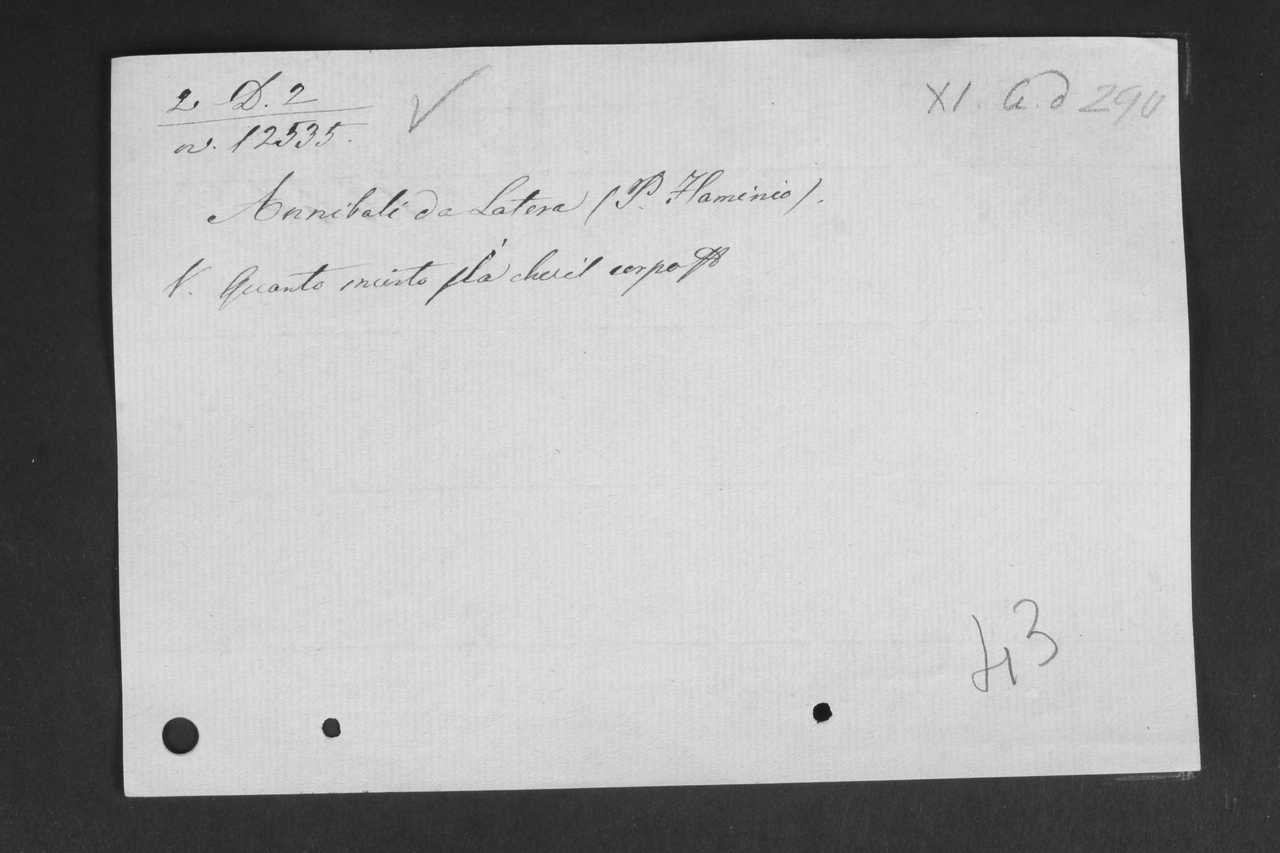 2 D. 2
XI. a. d 290
n. 12535.
Annibali da Latera (P. Flaminio).
V. Quanto incerto sia che il corpo
43